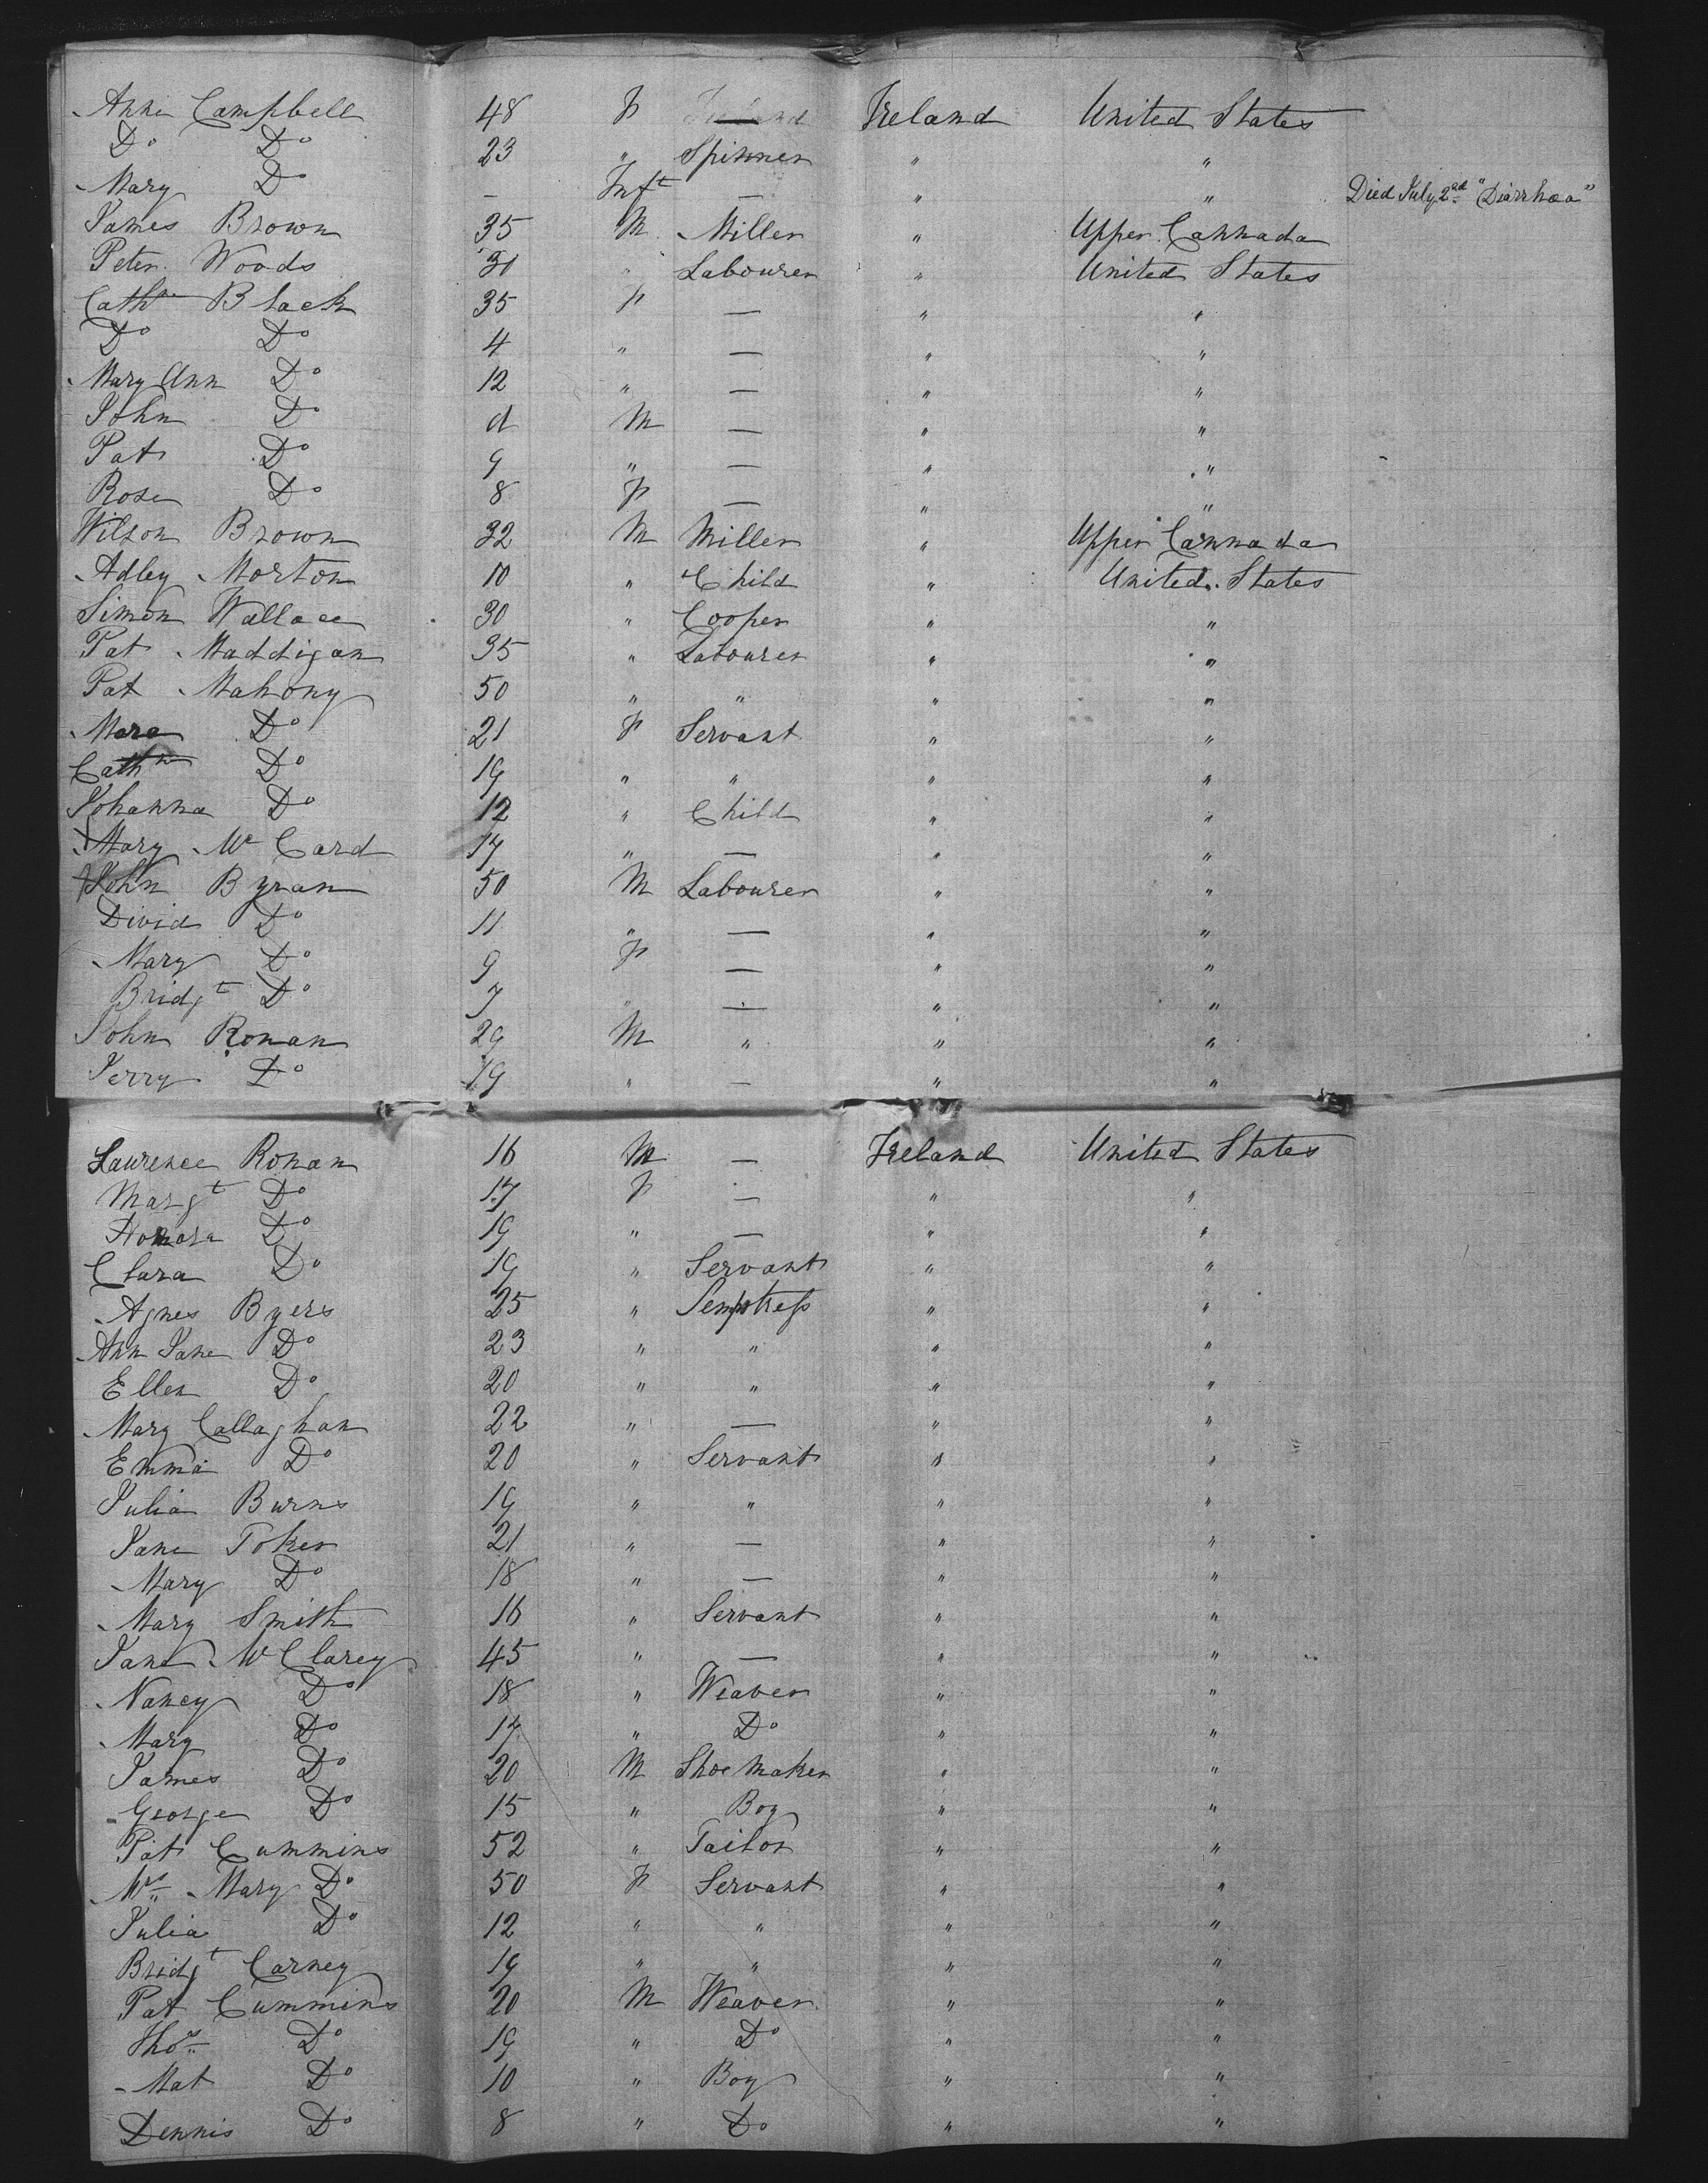 Anne Campbell 48 F — Ireland United States
Do Do 23 " Spinner " "
Mary Do — Inft — " " Died July 2nd "Diarrhœa"
James Brown 35 M Miller " Upper Cannada
Peter Woods 30 " Labourer " United States
Cathne Black 35 F — " "
Do Do 4 " — " "
Mary Ann Do 12 " — " "
John Do d M — " "
Pat Do 9 " — " "
Rose Do 8 F — " "
Wilson Brown 32 M Miller " Upper Cannada
Adley Morton 10 " Child " United States
Simon Wallace 30 " Cooper " "
Pat Maddigan 35 " Labourer " "
Pat Mahony 50 " " " "
Mara Do 21 F Servant " "
Cathne Do 19 " " " "
Johanna Do 12 " Child " "
Mary Mc Card 17 " — " "
John Byran 50 M Labourer " "
Divid Do 11 " — " "
Mary Do 9 F — " "
Bridgt Do 7 " — " "
John Ronan 29 M " " "
Jerry Do 19 " — " "
Laurence Ronan 16 M — Ireland United States
Margt Do 17 F — " "
Honora Do 19 " — " "
Clara Do 19 " Servant " "
Agnes Byers 25 " Sempstress " "
Ann Jane Do 23 " " " "
Ellen Do 20 " " " "
Mary Callaghan 22 " — " "
Emma Do 20 " Servant " "
Julia Burns 19 " " " "
Jane Toker 21 " — " "
Mary Do 18 " — " "
Mary Smith 16 " Servant " "
Jane McClarey 45 " — " "
Nancy Do 18 " Weaver " "
Mary Do 17 " Do " "
James Do 20 M Shoe Maker " "
George Do 15 " Boy " "
Pat Cummins 52 " Tailor " "
Mrs Mary Do 50 F Servant " "
Julia Do 12 " " " "
Bridgt Carney 19 " " " "
Pat Cummins 20 M Weaver " "
Thos Do 19 " Do " "
Mat Do 10 " Boy " "
Dennis Do 8 " Do " "